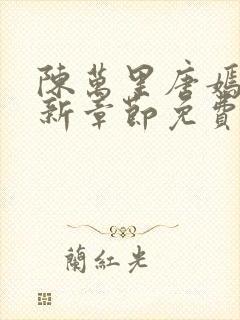 陳萬里唐嫣
新章節免費
蘭紅光